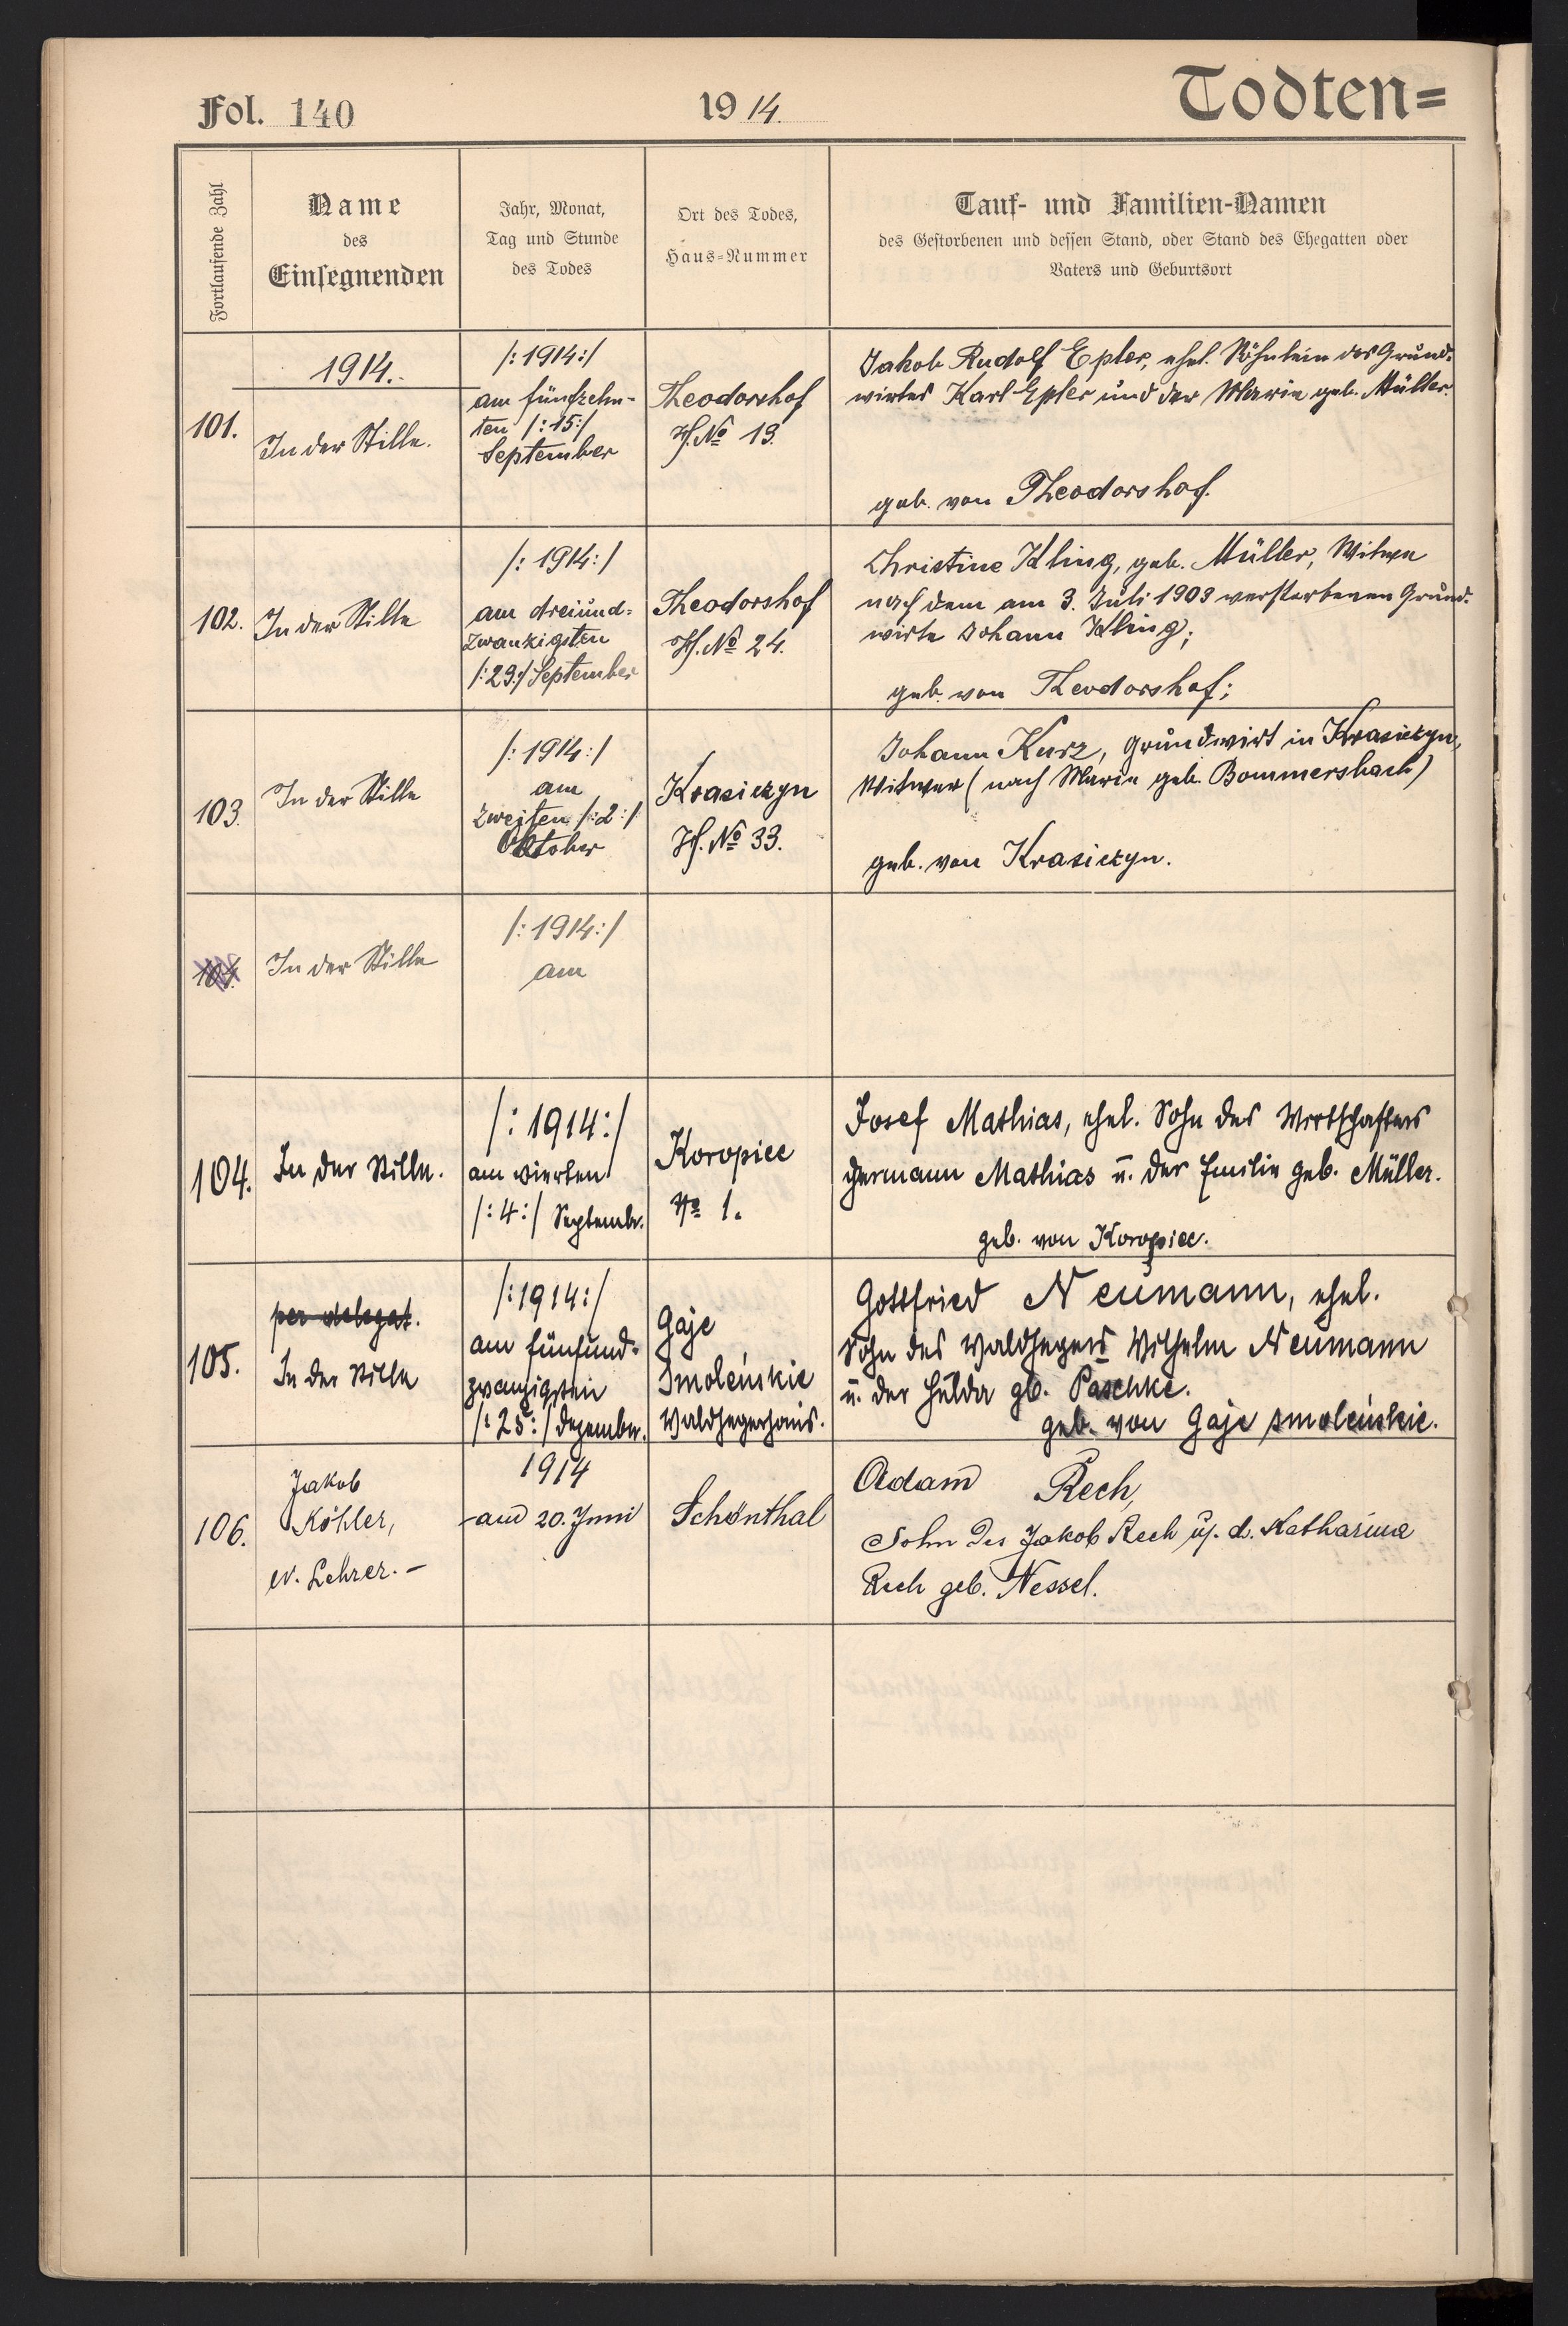 Fol. 140
1914.
Todten=
Fortlaufende Zahl
Name
des
Einsegnenden
Jahr, Monat,
Tag und Stunde
des Todes
Ort des Todes,
Haus-Nummer
Tauf- und Familien-Namen
des Gestorbenen und dessen Stand, oder Stand des Ehegatten oder
Vaters und Geburtsort
101.
1914.
In der Stille.
/:1914:/
am fünfzehn-
ten /:15:/
September
Theodorshof
H. No 13.
Jakob Rudolf Epler, ehel. Söhnlein des Grund-
wirtes Karl Epler und der Maria geb. Müller.
geb. von Theodorshof.
102.
In der Stille
/:1914:/
am dreiund-
zwanzigsten
/:23:/ September
Theodorshof
H. No 24.
Christine Kling, geb. Müller, Witwe
nach dem am 3. Juli 1903 verstorbenen Grund-
wirte Johann Kling;
geb. von Theodorshof;
103.
In der Stille
/:1914:/
am
zweiten /:2:/
Oktober
Krasiczyn
H. No 33.
Johann Kurz, Grundwirt in Krasiczyn,
Witwer (nach Maria geb. Bommersbach)
geb. von Krasiczyn.
104.
In der Stille
/:1914:/
am
104.
In der Stille.
/:1914:/
am vierten
/:4:/ Septembr.
Koropiec
No 1.
Josef Mathias, ehel. Sohn des Wirtschafters
Hermann Mathias u. der Emilie geb. Müller.
geb. von Koropiec.
105.
per delegat.
In der Stille
/:1914:/
am fünfund-
zwanzigsten
/:25:/ Dezember.
Gaje
Smoleńskie
Waldhegerhaus.
Gottfried Neumann, ehel.
Sohn des Waldhegers Wilhelm Neumann
u. der Hulda gb. Paschke.
geb. von Gaje smoleńskie.
106.
Jakob
Köhler,
ev. Lehrer. –
1914
am 20. Juni
Schönthal
Adam Rech,
Sohn des Jakob Rech u. d. Katharina
Rech geb. Nessel.